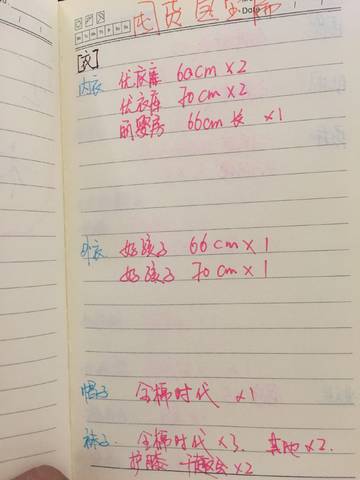 [衣]
内衣 优衣库 60cm×2
优衣库 70cm×2
丽婴房 66cm 长 ×1
外衣 好孩子 66cm×1
好孩子 70cm×1
帽子 全棉时代 ×1
袜子. 全棉时代×3. 其他×2.
护膝 ×2